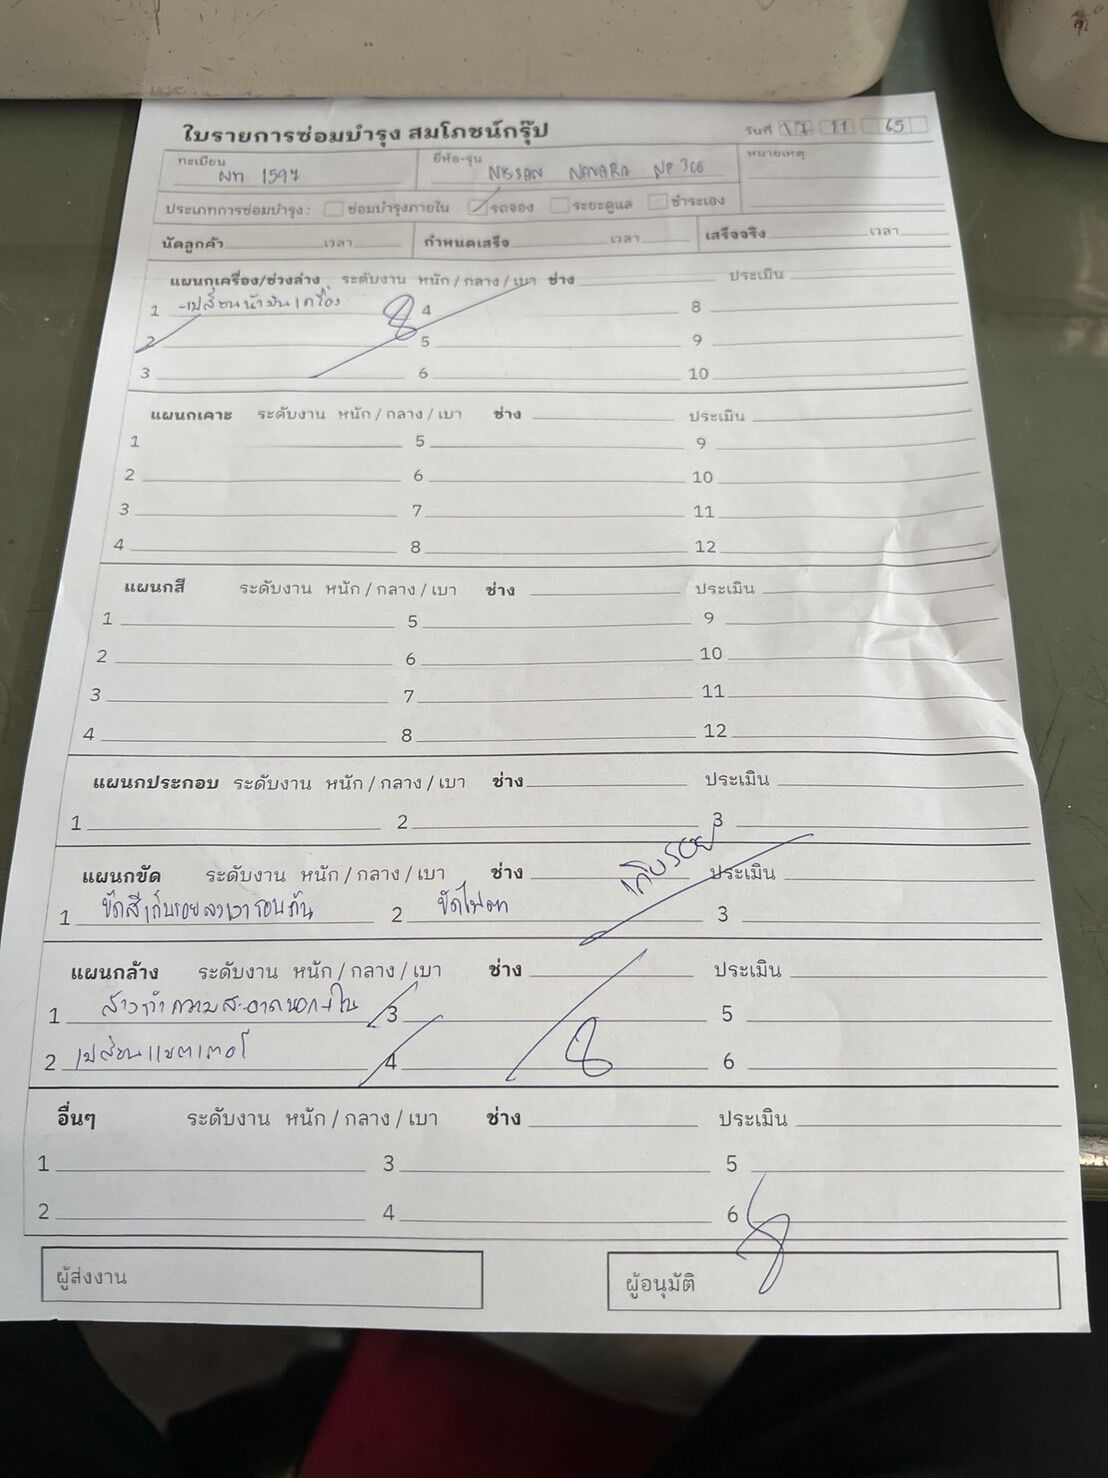 ใบรายการซ่อมบำรุง สมโภชน์กรุ๊ป
วันที่ 17 11 65
ทะเบียน ผท 1597 ยี่ห้อ-รุ่น NISSAN NAVARA NP 300 หมายเหตุ
ประเภทการซ่อมบำรุง : ซ่อมบำรุงภายใน รถจอง ระยะดูแล ชำระเอง
นัดลูกค้า เวลา กำหนดเสร็จ เวลา เสร็จจริง เวลา
แผนกเครื่อง/ช่วงล่าง ระดับงาน หนัก / กลาง / เบา ช่าง ประเมิน
1 -เปลี่ยนน้ำมันเครื่อง 4 8
2 5 9
3 6 10
แผนกเคาะ ระดับงาน หนัก / กลาง / เบา ช่าง ประเมิน
1 5 9
2 6 10
3 7 11
4 8 12
แผนกสี ระดับงาน หนัก / กลาง / เบา ช่าง ประเมิน
1 5 9
2 6 10
3 7 11
4 8 12
แผนกประกอบ ระดับงาน หนัก / กลาง / เบา ช่าง ประเมิน
1 2 3
แผนกขัด ระดับงาน หนัก / กลาง / เบา ช่าง เก็บรอย ประเมิน
1 ขัดสีเก็บรอยลงเงารอบคัน 2 ขัดไฟตา 3
แผนกล้าง ระดับงาน หนัก / กลาง / เบา ช่าง ประเมิน
1 ล้างทำความสะอาดนอก+ใน 3 5
2 เปลี่ยนแบตเตอรี่ 4 6
อื่นๆ ระดับงาน หนัก / กลาง / เบา ช่าง ประเมิน
1 3 5
2 4 6
ผู้ส่งงาน ผู้อนุมัติ